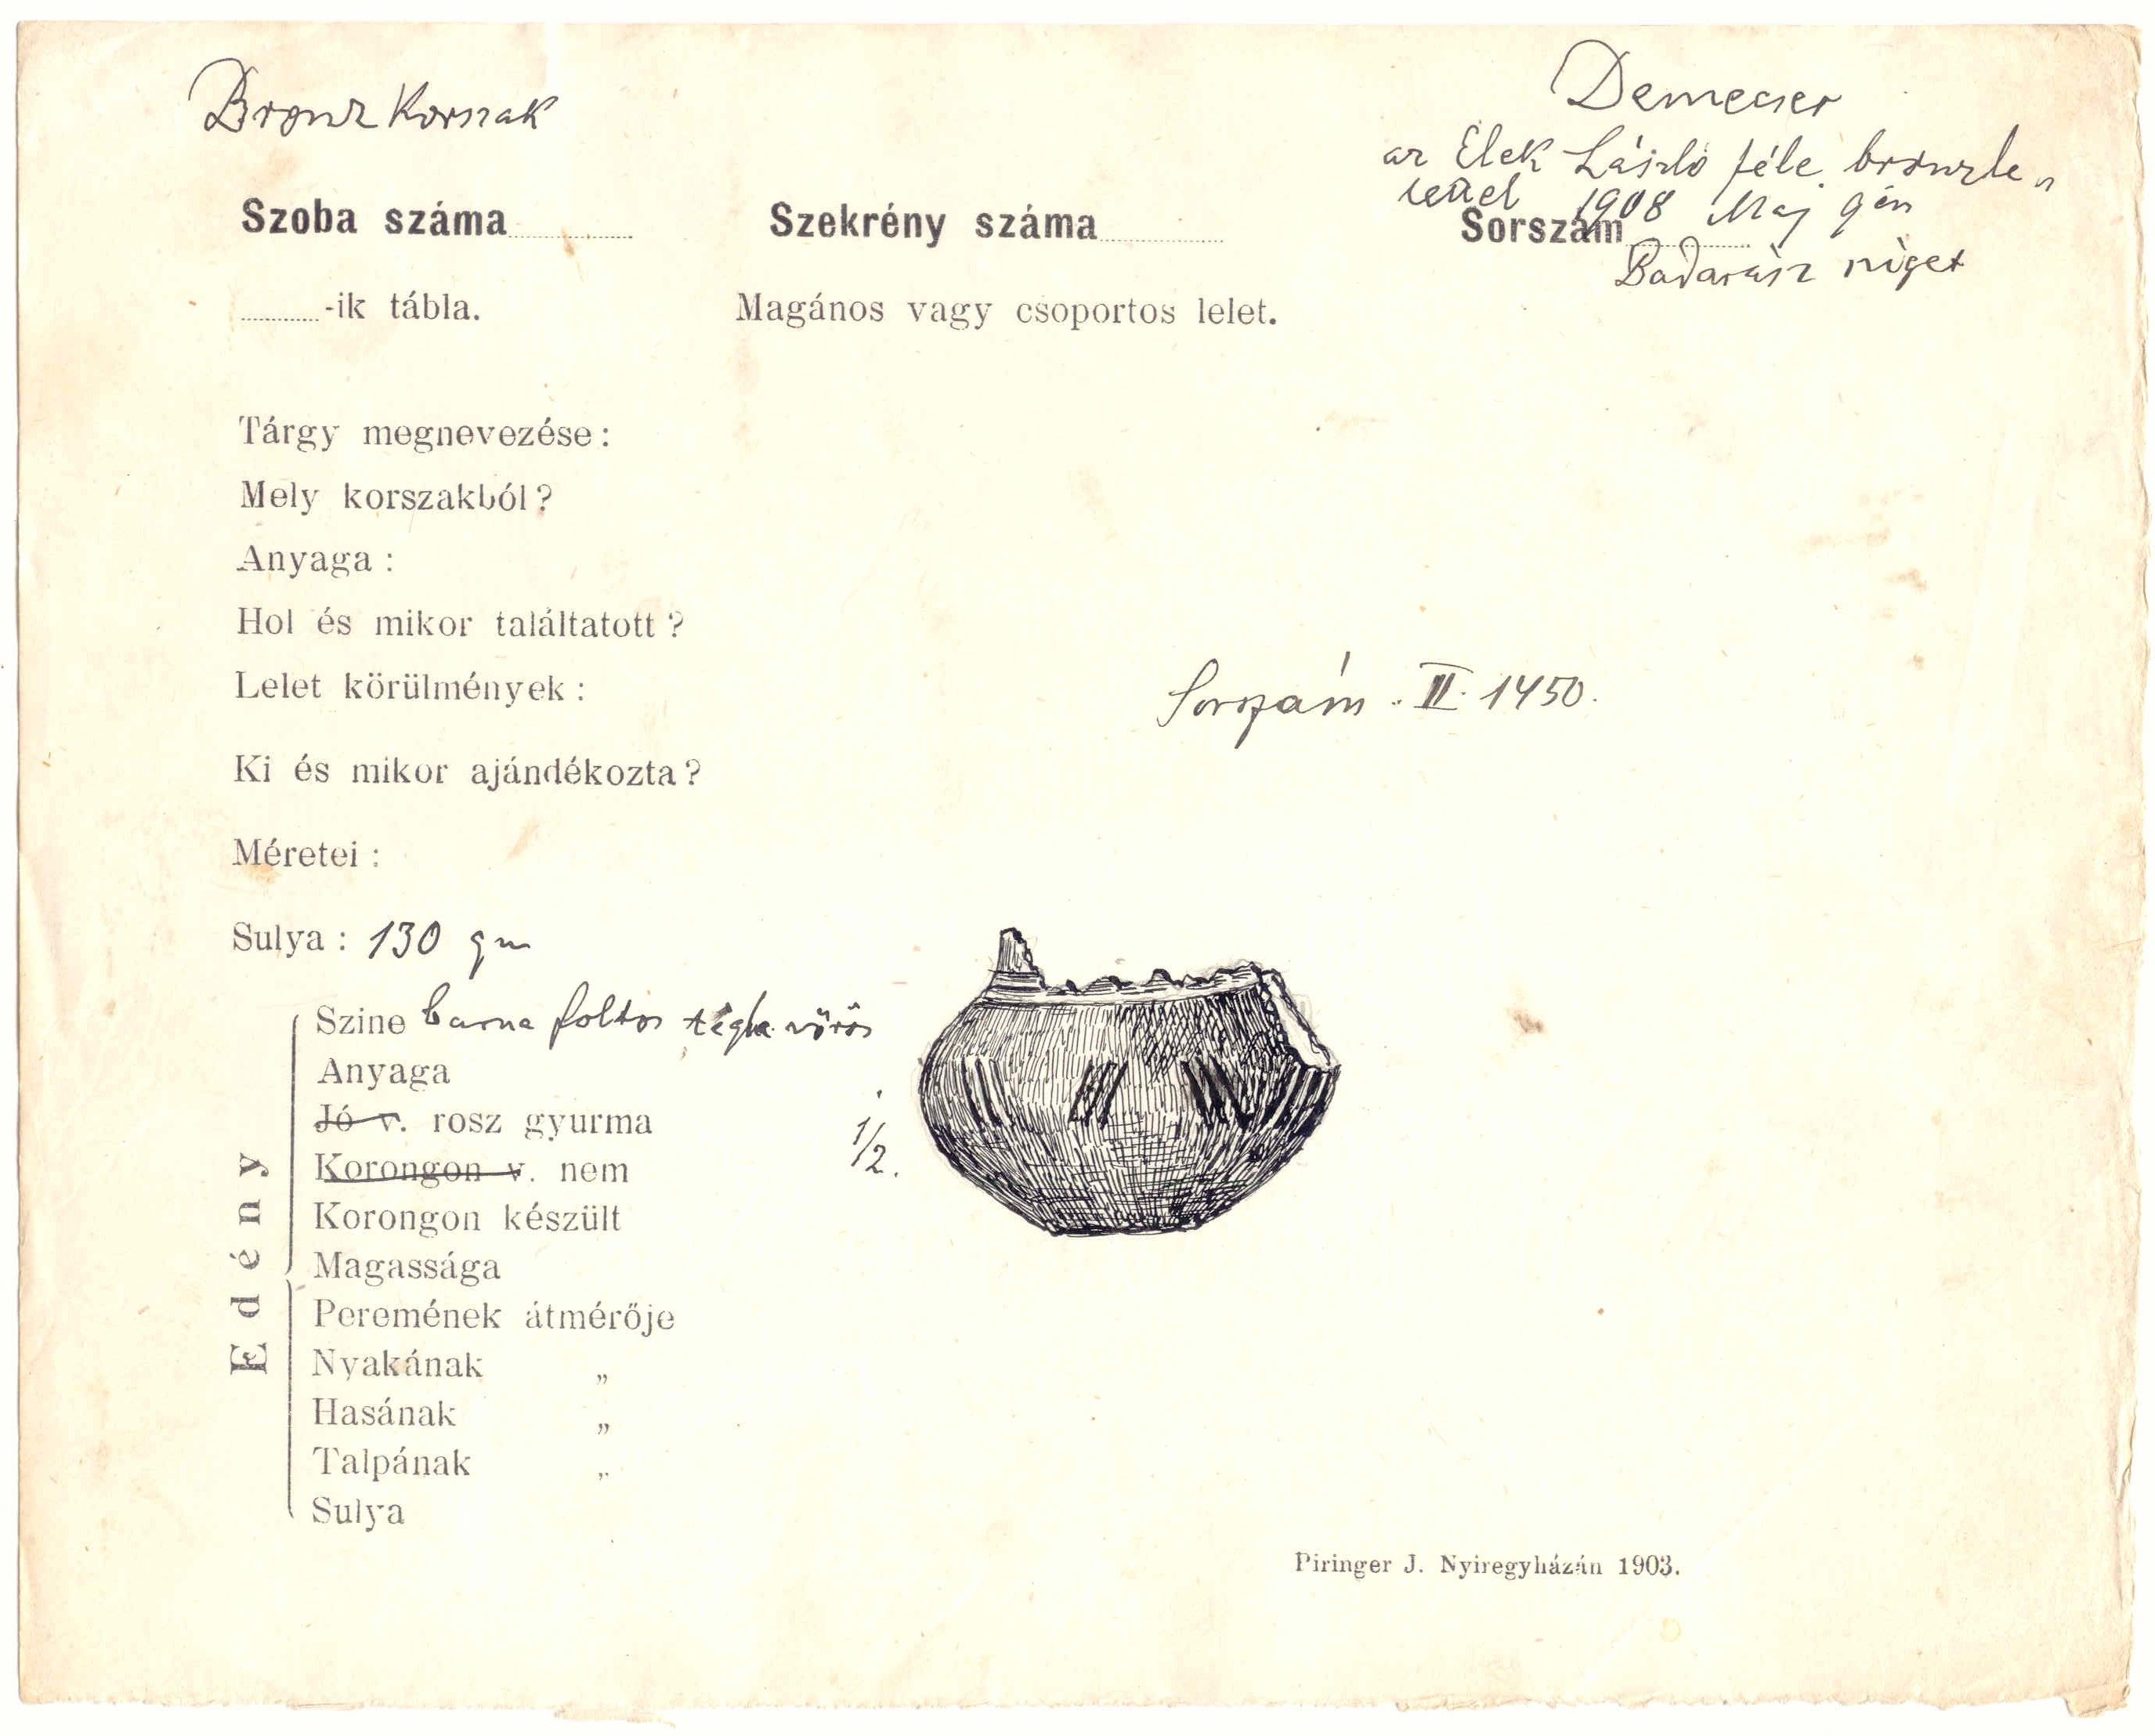 Bronz Korszak
Demecser
az Elek László féle bronzle„
lettel 1908 Maj 9én
Szoba száma
Szekrény száma
Sorszám
Badarász sziget
-ik tábla.
Magános vagy csoportos lelet.
Tárgy megnevezése:
Mely korszakból?
Anyaga:
Hol és mikor találtatott?
Lelet körülmények:
Sorszám. II. 1450.
Ki és mikor ajándékozta?
Méretei:
Sulya: 130 gm
Edény
Szine barna foltos tégla vörös
Anyaga
Jó v. rosz gyurma
1/2.
Korongon v. nem
Korongon készült
Magassága
Peremének átmérője
Nyakának „
Hasának „
Talpának „
Sulya
Piringer J. Nyiregyházán 1903.